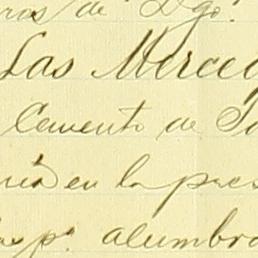 ros de Dgo.
Las Merced
Cemento de To
en la pres
p.ª alumbra